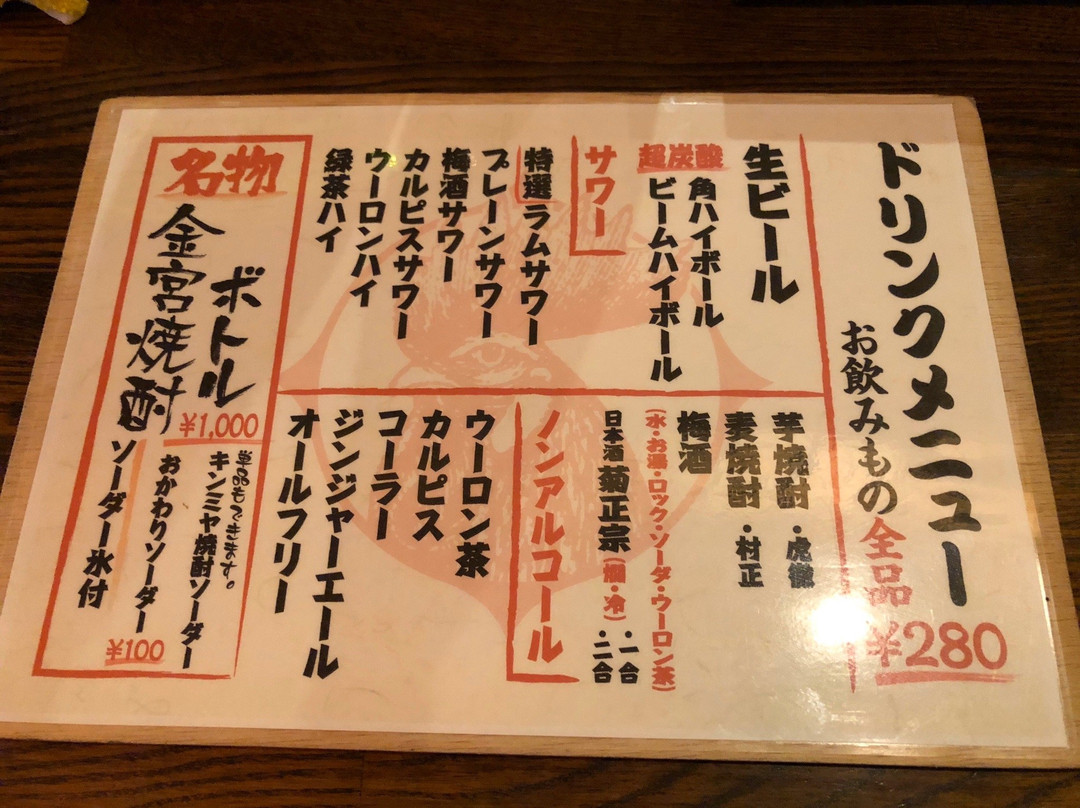 ドリンクメニュー
お飲みもの全品
¥280
生ビール
超炭酸
角ハイボール
ビームハイボール
サワー
特選ラムサワー
プレーンサワー
梅酒サワー
カルピスサワー
ウーロンハイ
緑茶ハイ
芋焼酎・虎徹
麦焼酎・村正
梅酒
(水・お湯・ロック・ソーダ・ウーロン茶)
日本酒 菊正宗(燗・冷)
・一合
・二合
ノンアルコール
ウーロン茶
カルピス
コーラー
ジンジャーエール
オールフリー
名物
ボトル
金宮焼酎
¥1,000
ソーダー氷付
単品もできます。
キンミヤ焼酎ソーダー
おかわりソーダー
¥100